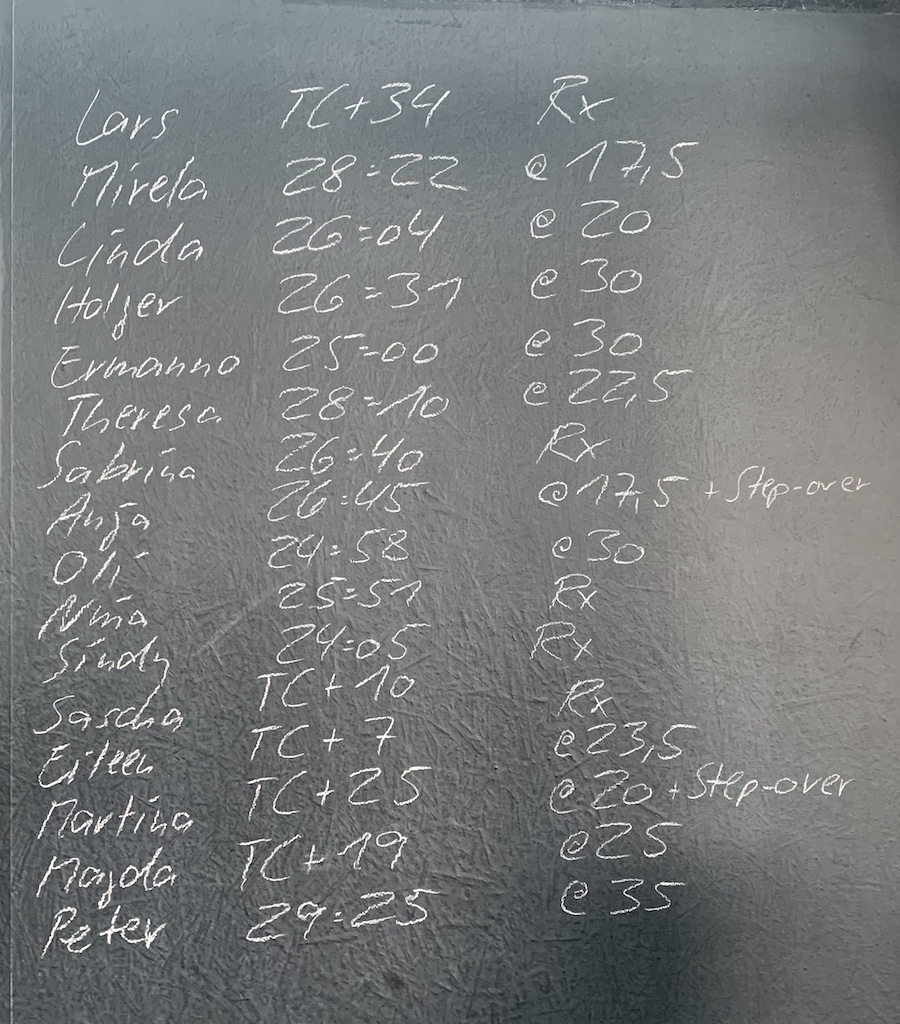 Lars TC+34 Rx
Mirela 28:22 @ 17,5
Linda 26:04 @ 20
Holger 26:31 @ 30
Ermanno 25:00 @ 30
Theresa 28:10 @ 22,5
Sabrina 26:40 Rx
Anja 26:45 @ 17,5 + Step-over
Oli 24:58 @ 30
Nina 25:51 Rx
Sindy 24:05 Rx
Sascha TC+10 Rx
Eileen TC+7 @ 23,5
Martina TC+25 @ 20 + Step-over
Magda TC+19 @ 25
Peter 29:25 @ 35